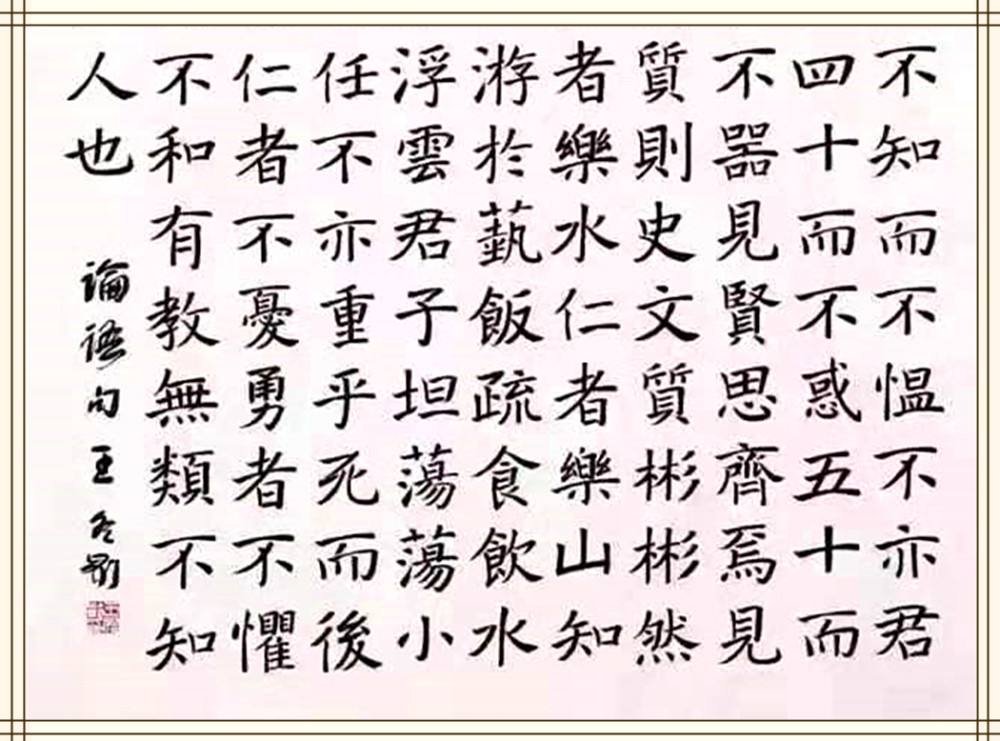 不知而不愠不亦君
四十而不惑五十而
不器見賢思齊焉見
質則史文質彬彬然
者樂水仁者樂山知
游於藝飯疏食飲水
浮雲君子坦蕩蕩小
任不亦重乎死而後
仁者不憂勇者不懼
不和有教無類不知
人也
論語句王冬影